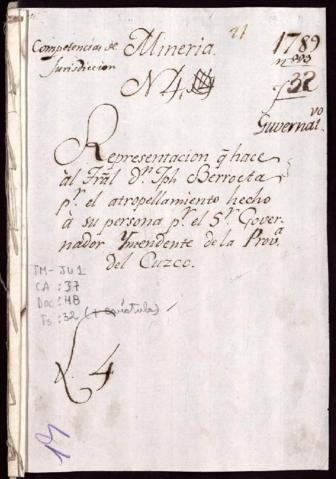 Competencias de
Jurisdiccion
Mineria
21
1789
N 4,
32
Guvernat.vo
Representacion q̃ hace
àl Trãl dn. Jph Berroeta
pr. el atropellamiento hecho
à su persona pr. el Sr. Gover-
nador Yntendente de la Prova.
del Cuzco.
TM-JU1
CA: 37
Doc: 48
Fs: 32 (+ carátula)
L. 4